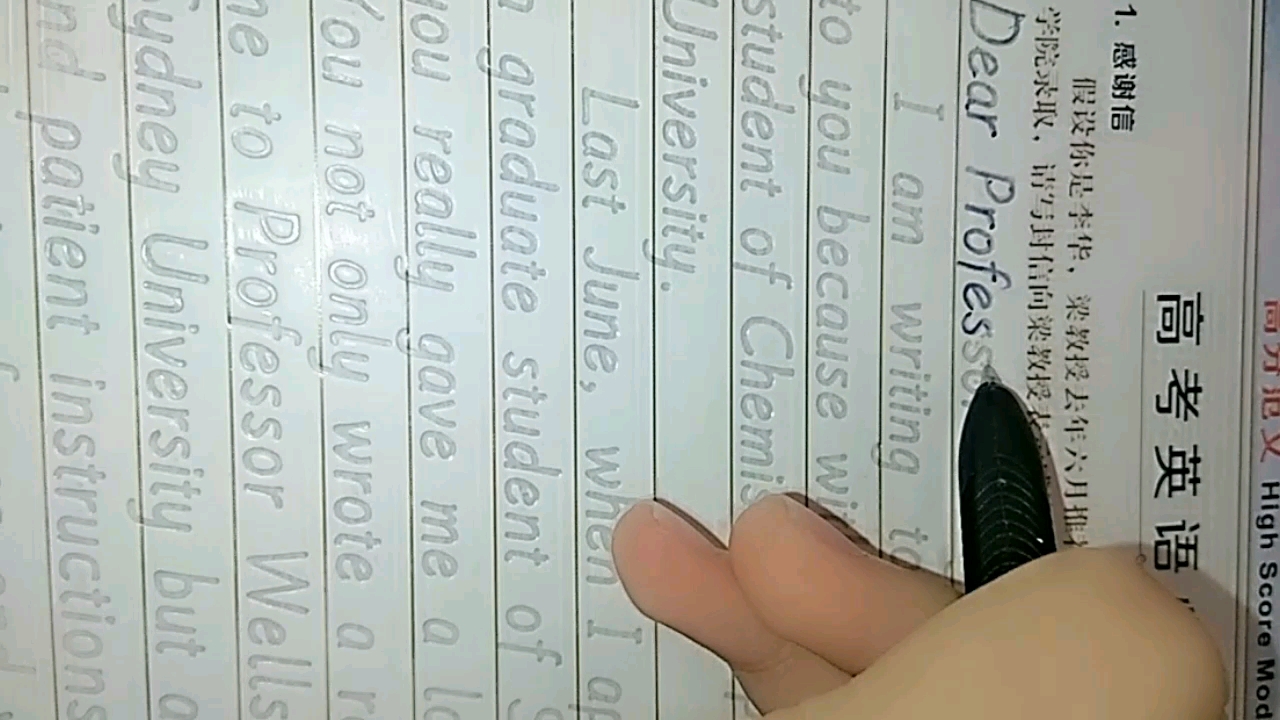 高分范文 High Score Mod
高考英语
1. 感谢信
假设你是李华，梁教授去年六月推
学院录取，请写封信向梁教授
Dear Profess
I am writing to
to you because
student of Chemis
University.
Last June, when I ap
graduate student of
you really gave me a lo
You not only wrote a re
me to Professor Wells
Sydney University but a
and patient instructions